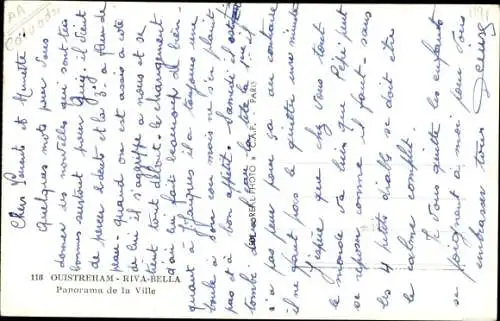 Chers Parents et Minette.
Quelques mots pour vous
donner des nouvelles qui sont très
bonnes surtout pour Guy il vient
de percer 2 dents et la 3e à fleur de
peau. quand on est assis à côté
de lui il s'agrippe à nous et se
tient tout debout. le changement
d'air lui fait beaucoup de bien.
quant à Jacques il a toujours une
boule à son cou mais ne s'en plaint
pas et a bon appétit. Samedi il
tombé dans l'eau la tête la 1ère il
n'a pas peur pour ça au contraire
il ne faut pas le quitter une minute
J'espère que chez vous tout
le monde va bien que Pépé peut
se reposer comme il faut sans
les 4 petits diables ce doit être
le calme complet.
Je vous quitte les enfants
se joignent à moi pour vous
embrasser tous
118 OUISTREHAM - RIVA-BELLA
Panorama de la Ville
REAL PHOTO C.A.P. - PARIS